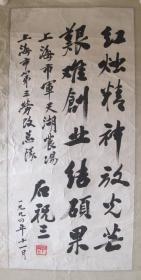 红烛精神放光芒
艰难創业结碩果
上海市軍天湖農场
上海市第三劳改总队
石祝三
一九九四年十一月